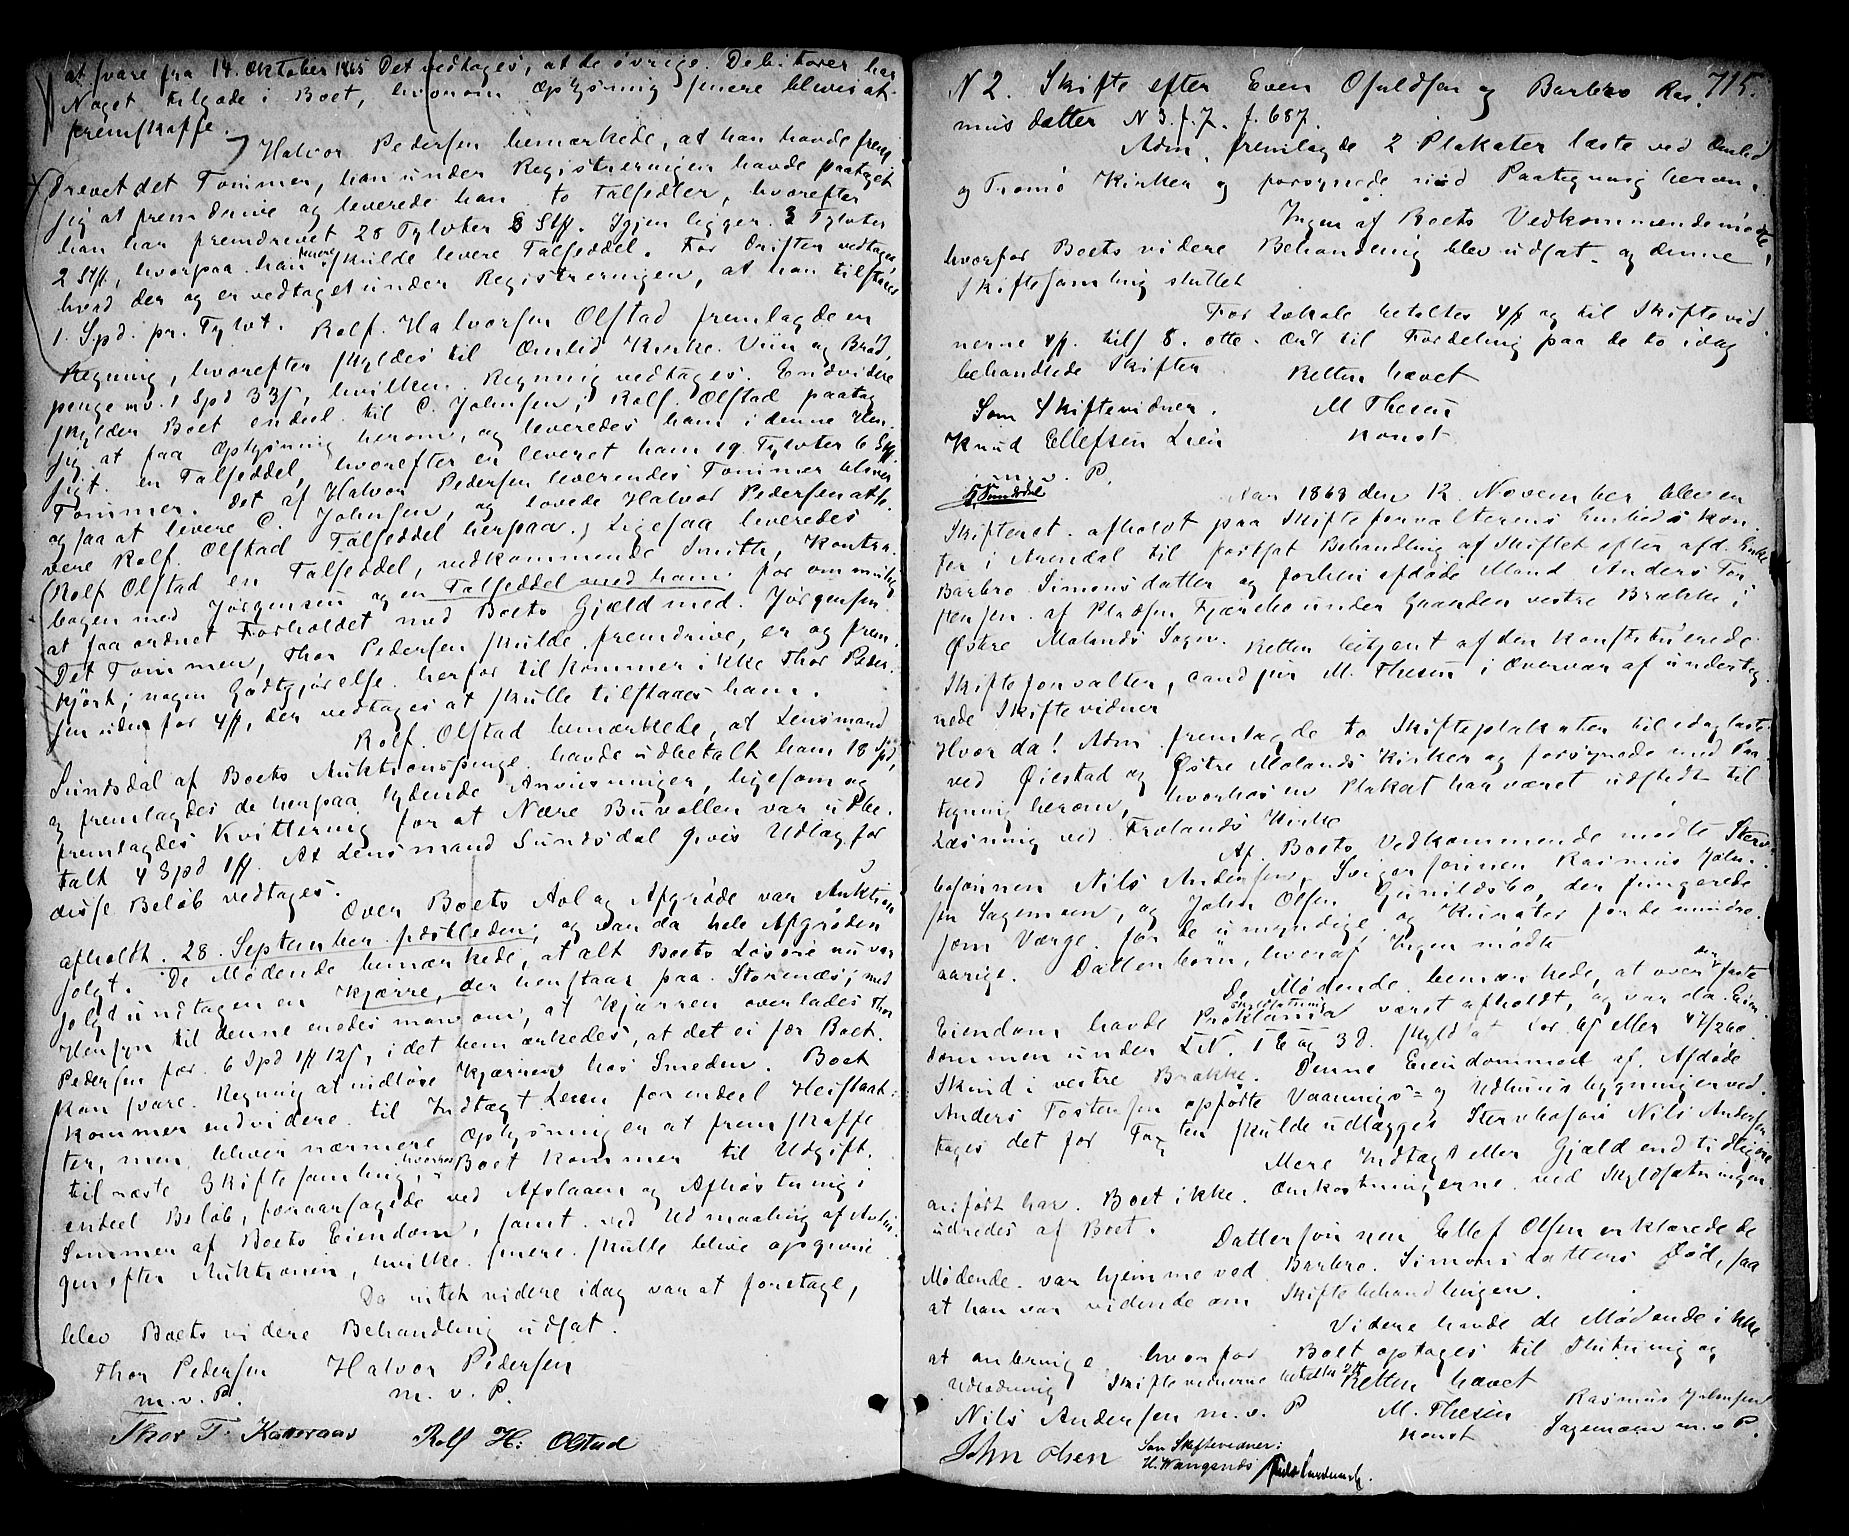 at svare fra 14. Oktober 1865 Det vedtages, at de øvrige Debitorer har
Noget tilgode i Boet, hvorom Oplysning senere blive at
fremskaffe.
Halvor Pedersen bemærkede, at han havde frem
drevet det Tømmer, han under Registreringen havde paataget
sig at fremdrive og leverede han to Talsedler, hvorefter
han har fremdrevet 28 Tylvter 8 Stk. Igjen ligger 3 Tylvter
2 Stk, hvorpaa han senere skulde levere Talseddel. For Driften vedtages
hvad der og er vedtaget under Registreringen, at han tilstaaes
1 Spd. pr. Tylvt. Rolf Halvorsen Olstad fremlagde en
Regning, hvorefter skyldes til Omlid Kirke Viin og Brød
penge mv. 1 Spd 33 s, hvilken Regning vedtages. Endvidere
skylder Boet endeel til C. Johnsen; Rolf Olstad paatog
sig at faa Oplysning herom, og leveredes ham i denne Hen
sigt en Talseddel, hvorefter er leveret ham 19 Tylvter 6 Stk
Tømmer. Det af Halvor Pedersen leverendes Tømmer bliver
ogsaa at levere C. Johnsen, og lovede Halvor Pedersen at le
vere Rolf Olstad Talseddel herpaa. Ligesaa leveredes
Rolf Olstad en Talseddel, vedkommende Smith, Kontra
bogen med Jørgensen og en Talseddel ved ham for om mulig
at faa ordnet Forholdet med Boets Gjæld med Jørgensen.
Det Tømmer, Thor Pedersen skulde fremdrive, er og frem
kjørt; nogen Godtgjørelse herfor tilkommer ikke Thor Peder
sen uden for 4 s, der vedtages at skulle tilstaaes ham.
Rolf Olstad bemærkede, at Lensmand
Sundsdal af Boets Auktionspenge havde udbetalt ham 18 Spd,
og fremlagdes de herpaa lydende Anvisninger, ligesom og
fremlagdes Kvittering for at Nære Buvollen var udbe
talt 4 Spd 1 s. At Lensmand Sundsdal gives Udlæg for
disse Beløb vedtages.
Over Boets Avl og Afgrøde var Auktion
afholdt 28. September sidstleden, og var da hele Afgrøden
solgt. De Mødende bemærkede, at alt Boets Løsøre nu var
solgt undtagen en Kjærre, der henstaar paa Storenæs; med
Hensyn til denne enedes man om, at Kjærren overlades Thor
Pedersen for 6 Spd 1 s 12 s, idet bemærkedes, at det ei før Boet
kan svare Regning at indløse Kjærren hos Smeden. Boet
kommer endvidere til Indtægt Leien for endeel Heistaat
ter, men bliver nærmere Oplysninger at fremskaffe
til næste Skiftesamling, hvorhos Boet kommer til Udgift
endeel Beløb, foraarsagede ved Afslaaen og Afhøstning i
Sommer af Boets Eiendom, samt ved Udmaaling af Avlin
gen efter Auktionen, hvilke senere skulle blive opgivne.
Da intet videre idag var at foretage,
blev Boets videre Behandling udsat.
Thor Pedersen Halvor Pedersen
m. v. P. m. v. P.
Thor T. Kaaveraas Rolf H: Olstad
715.
N 2. Skifte efter Even Osuldsen og Barbro Ras
mus datter N 3. f. 7. f. 687.
Adm. fremlagde 2 Plakater læste ved Omlid
og Tromø Kirker og forsynede med Paategning herom.
Ingen af Boets Vedkommende mødte,
hvorfor Boets videre Behandling blev udsat og denne
Skiftesamling sluttet
For Lokale betaltes 4 s og til Skiftevid
nerne 4 s. tils 8. otte Ort til Fordeling paa de to idag
behandlede Skifter. Retten hævet
Som Skiftevidner. M Thesen
Knud Ellefsen Lien Konst
m. v. P.
T. Sundsdal
Aar 1868 den 12 November blev en
Skifteret afholdt paa Skifteforvalterens Embedskon
tor i Arendal til fortsat Behandling af Skiftet efter afd. Enke
Barbro Simonsdatter og forhen afdøde Mand Anders Tor
stensen af Pladsen Fjærebo under Gaarden vestre Brække i
Østre Molands Sogn. Retten betjent af den konstituerede
Skifteforvalter, cand jur M. Thesen i Overvær af underteg
nede Skiftevidner
Hvor da! Adm fremlagde to Skifteplakater til idag læste
ved Øiestad og Østre Molands Kirker og forsynede med Paa
tegning herom, hvorhos en Plakat har været udstedt til
Læsning ved Frolands Kirke
Af Boets Vedkommende mødte Sterv
bosønnen Nils Andersen, Svigersønnen Rasmus John
sen Sagemoen, og John Olsen Gunildsbo, der fungerede
som Værge for de umyndige og Kurator for de mindre
aarige Datterbørn, hveraf Ingen mødte
De Mødende bemærkede, at over den faste
Eiendom havde Skyldsætning været afholdt, og var da Eien
dommen under LN. 1 E og 38 skyldsat for 6 s eller 47/260
Skind i vestre Brække. Denne Eiendom med af Afdøde
Anders Tostensen opførte Vaanings- og Udhuusbygninger ved
tages det for Taxten skulde udlægges Stervbosøn Nils Andersen
Mere Indtægt eller Gjæld end tidligere
anført har Boet ikke. Omkostningerne ved Skyldsætningen
udredes af Boet.
Dattersønnen Ellef Olsen erklærede de
Mødende var hjemme ved Barbro Simonsdatters Død, saa
at han var vidende om Skiftebehandlingen.
Videre havde de Mødende ikke
at anbringe hvorfor Boet optages til Slutning og
Udlodning Skiftevidnerne betaltes 2 s Retten hævet
Nils Andersen m. v. P M. Thesen Rasmus Johnsen
Konst Sagemoen m. v P.
John Olsen Som Skiftevidner:
H. Wangensøs